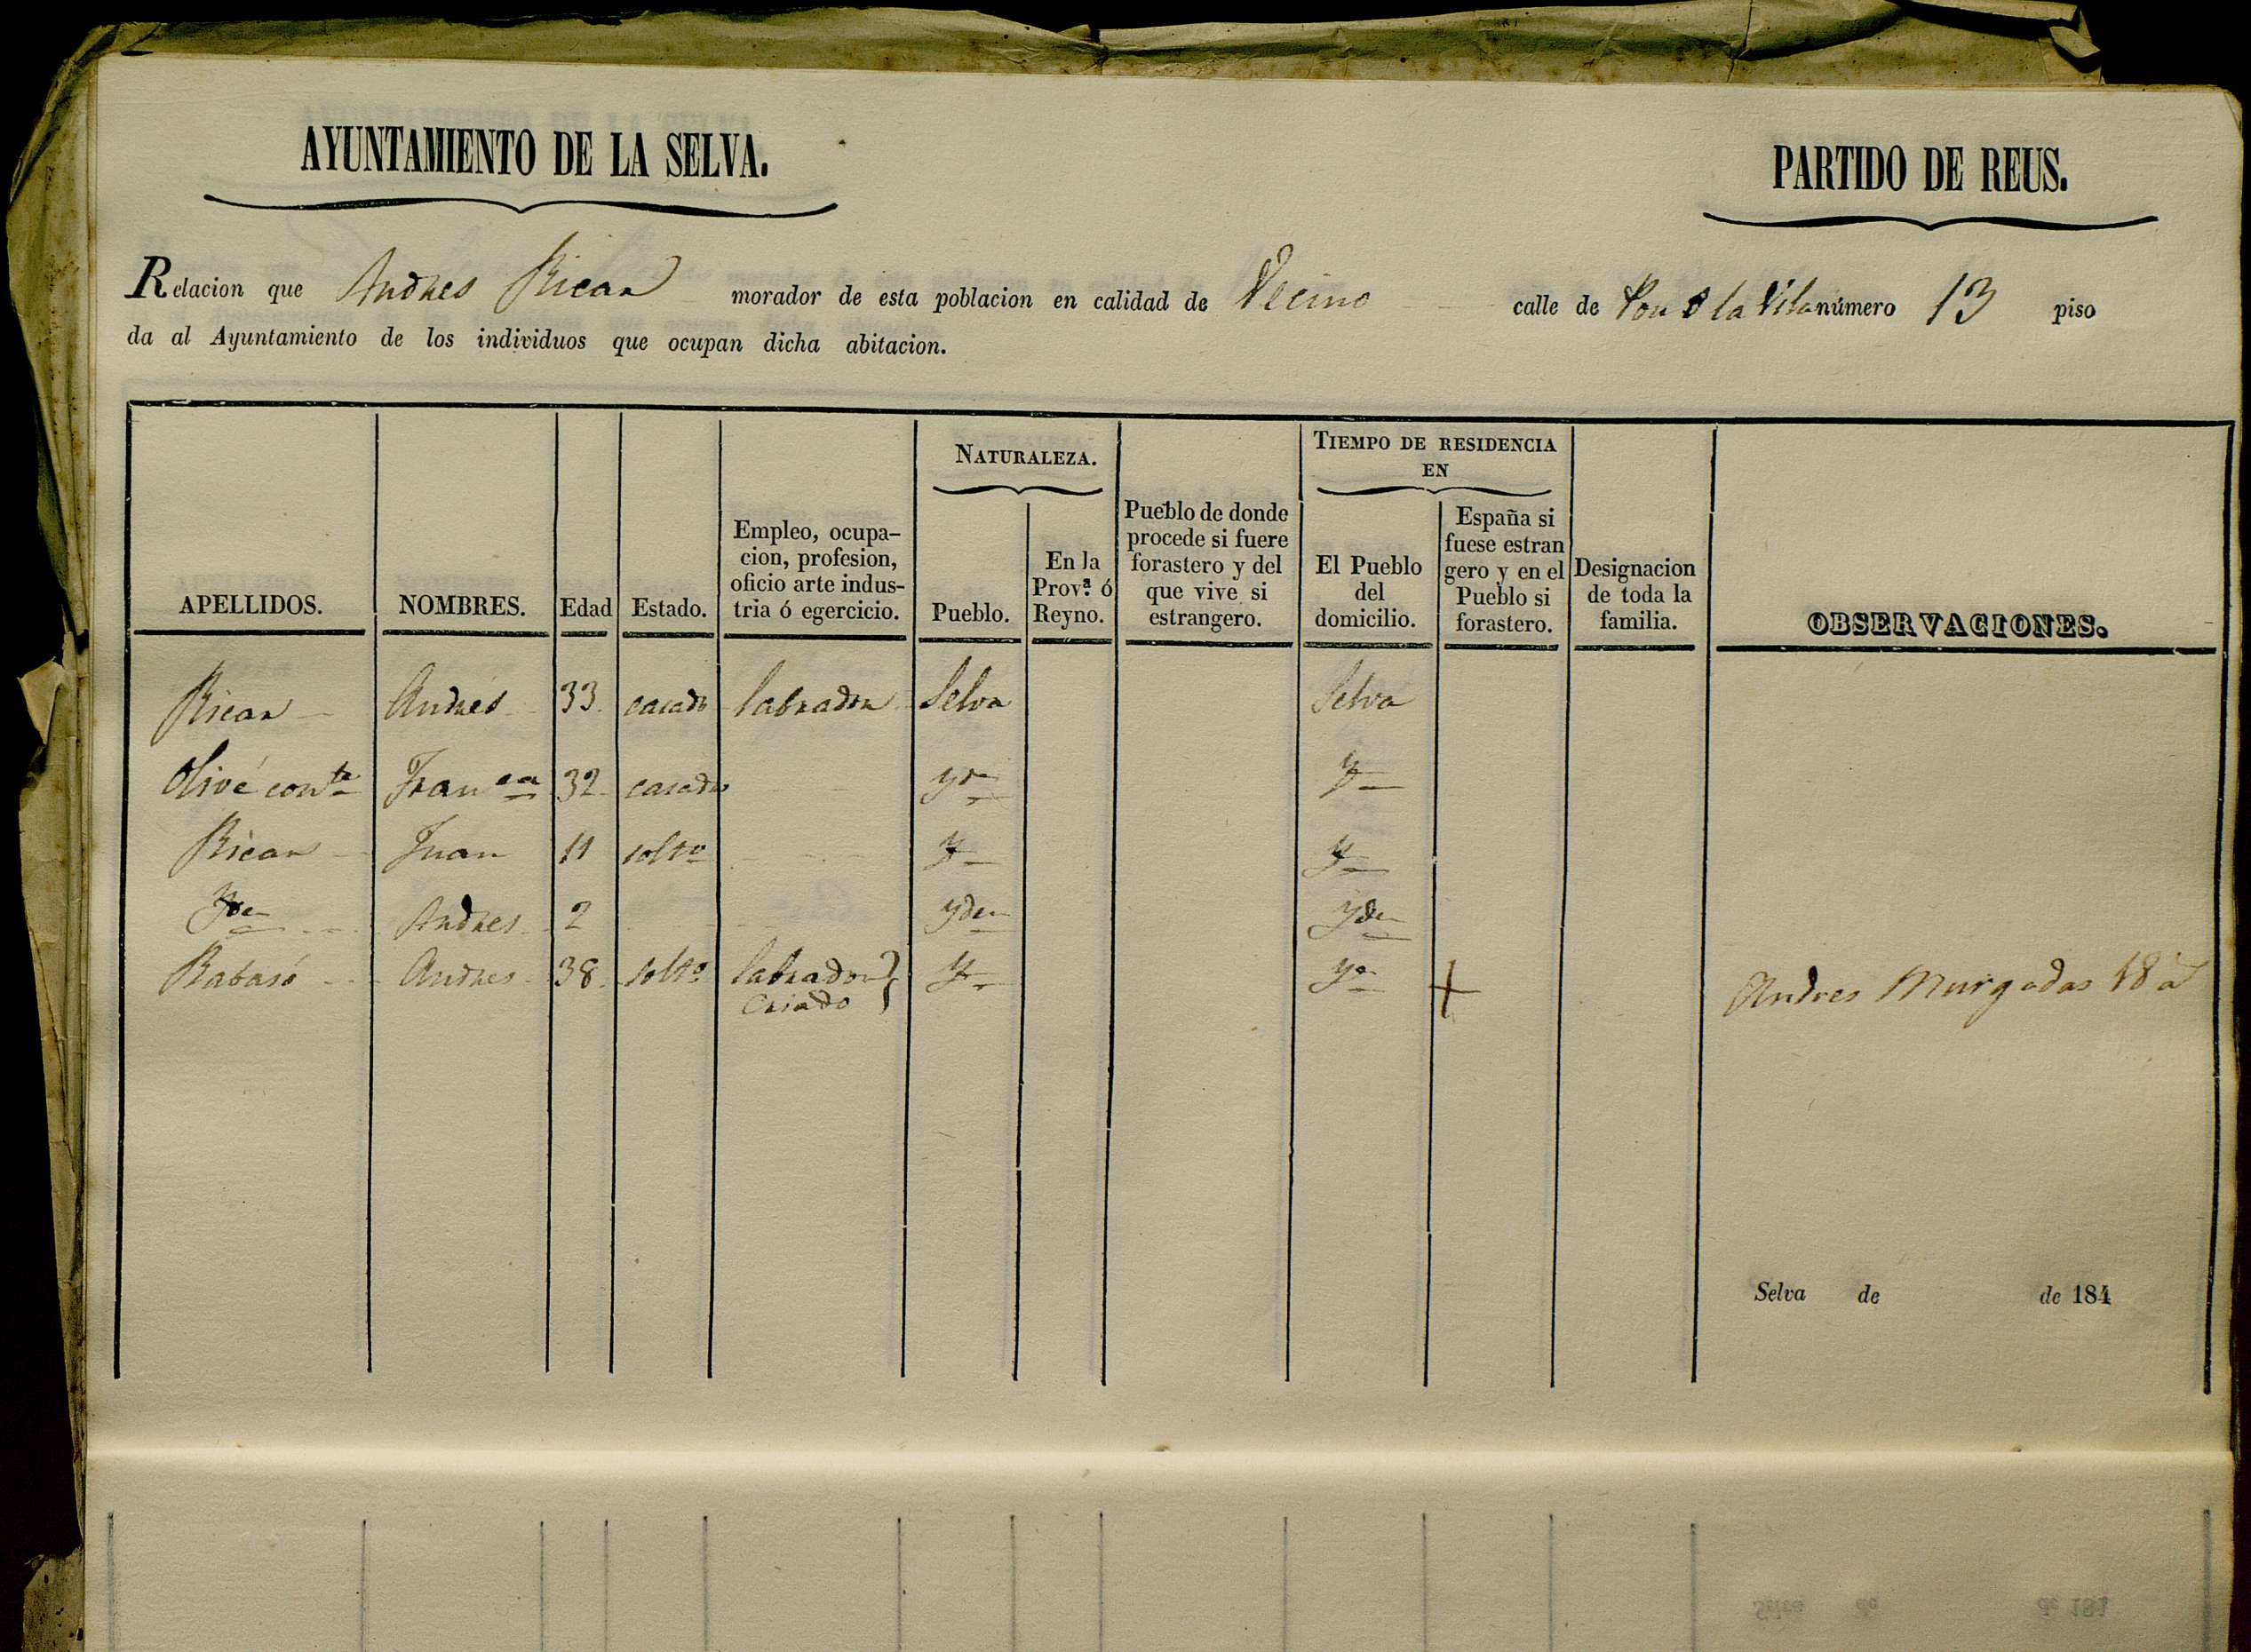 AYUNTAMIENTO DE LA SELVA.
PARTIDO DE REUS.
Relacion que Andres Ricar morador de esta poblacion en calidad de Vecino calle de la Vila número 13 piso
da al Ayuntamiento de los individuos que ocupan dicha abitacion.
NATURALEZA.
TIEMPO DE RESIDENCIA
EN
APELLIDOS.
NOMBRES.
Edad
Estado.
Empleo, ocupa-
cion, profesion,
oficio arte indus-
tria ó egercicio.
Pueblo.
En la
Prov.ª ó
Reyno.
Pueblo de donde
procede si fuere
forastero y del
que vive si
estrangero.
El Pueblo
del
domicilio.
España si
fuese estran
gero y en el
Pueblo si
forastero.
Designacion
de toda la
familia.
OBSERVACIONES.
Ricar Andrés 33 casado labrador Selva Selva
Olivé con.te Fran.ca 32 casada yd.
Ricar Juan 11 solt.o
Andres 2 yden yden
Rabasó Andres 38 solt.o labrador } +
criado
Andres Murgadas 18 a
Selva de de 184